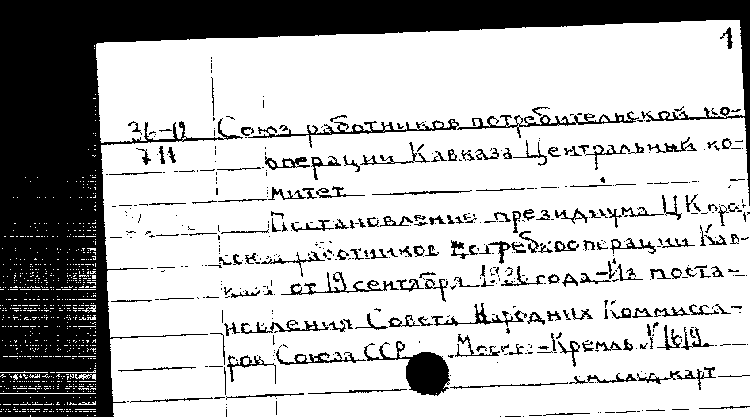 1
36-19 Союз работников потребительской ко-
711 операции Кавказа Центральный ко-
митет
Постановление президиума ЦК проф
союза работников потребкооперации Кав-
каза от 19 сентября года.-Из поста-
новления Совета Народних Коммисса-
ров Союза ССР Москва-Кремль №1619.
см. след карт